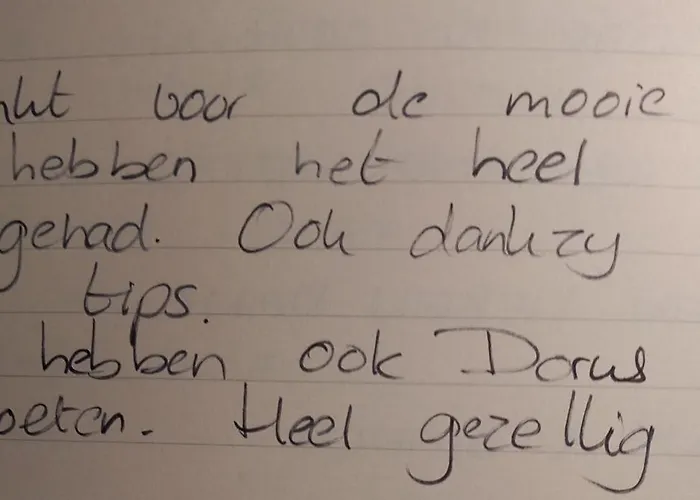 nkt voor de mooie
hebben het heel
gehad. Ook dankzy
tips.
hebben ook Dorus
oeten. Heel gezellig